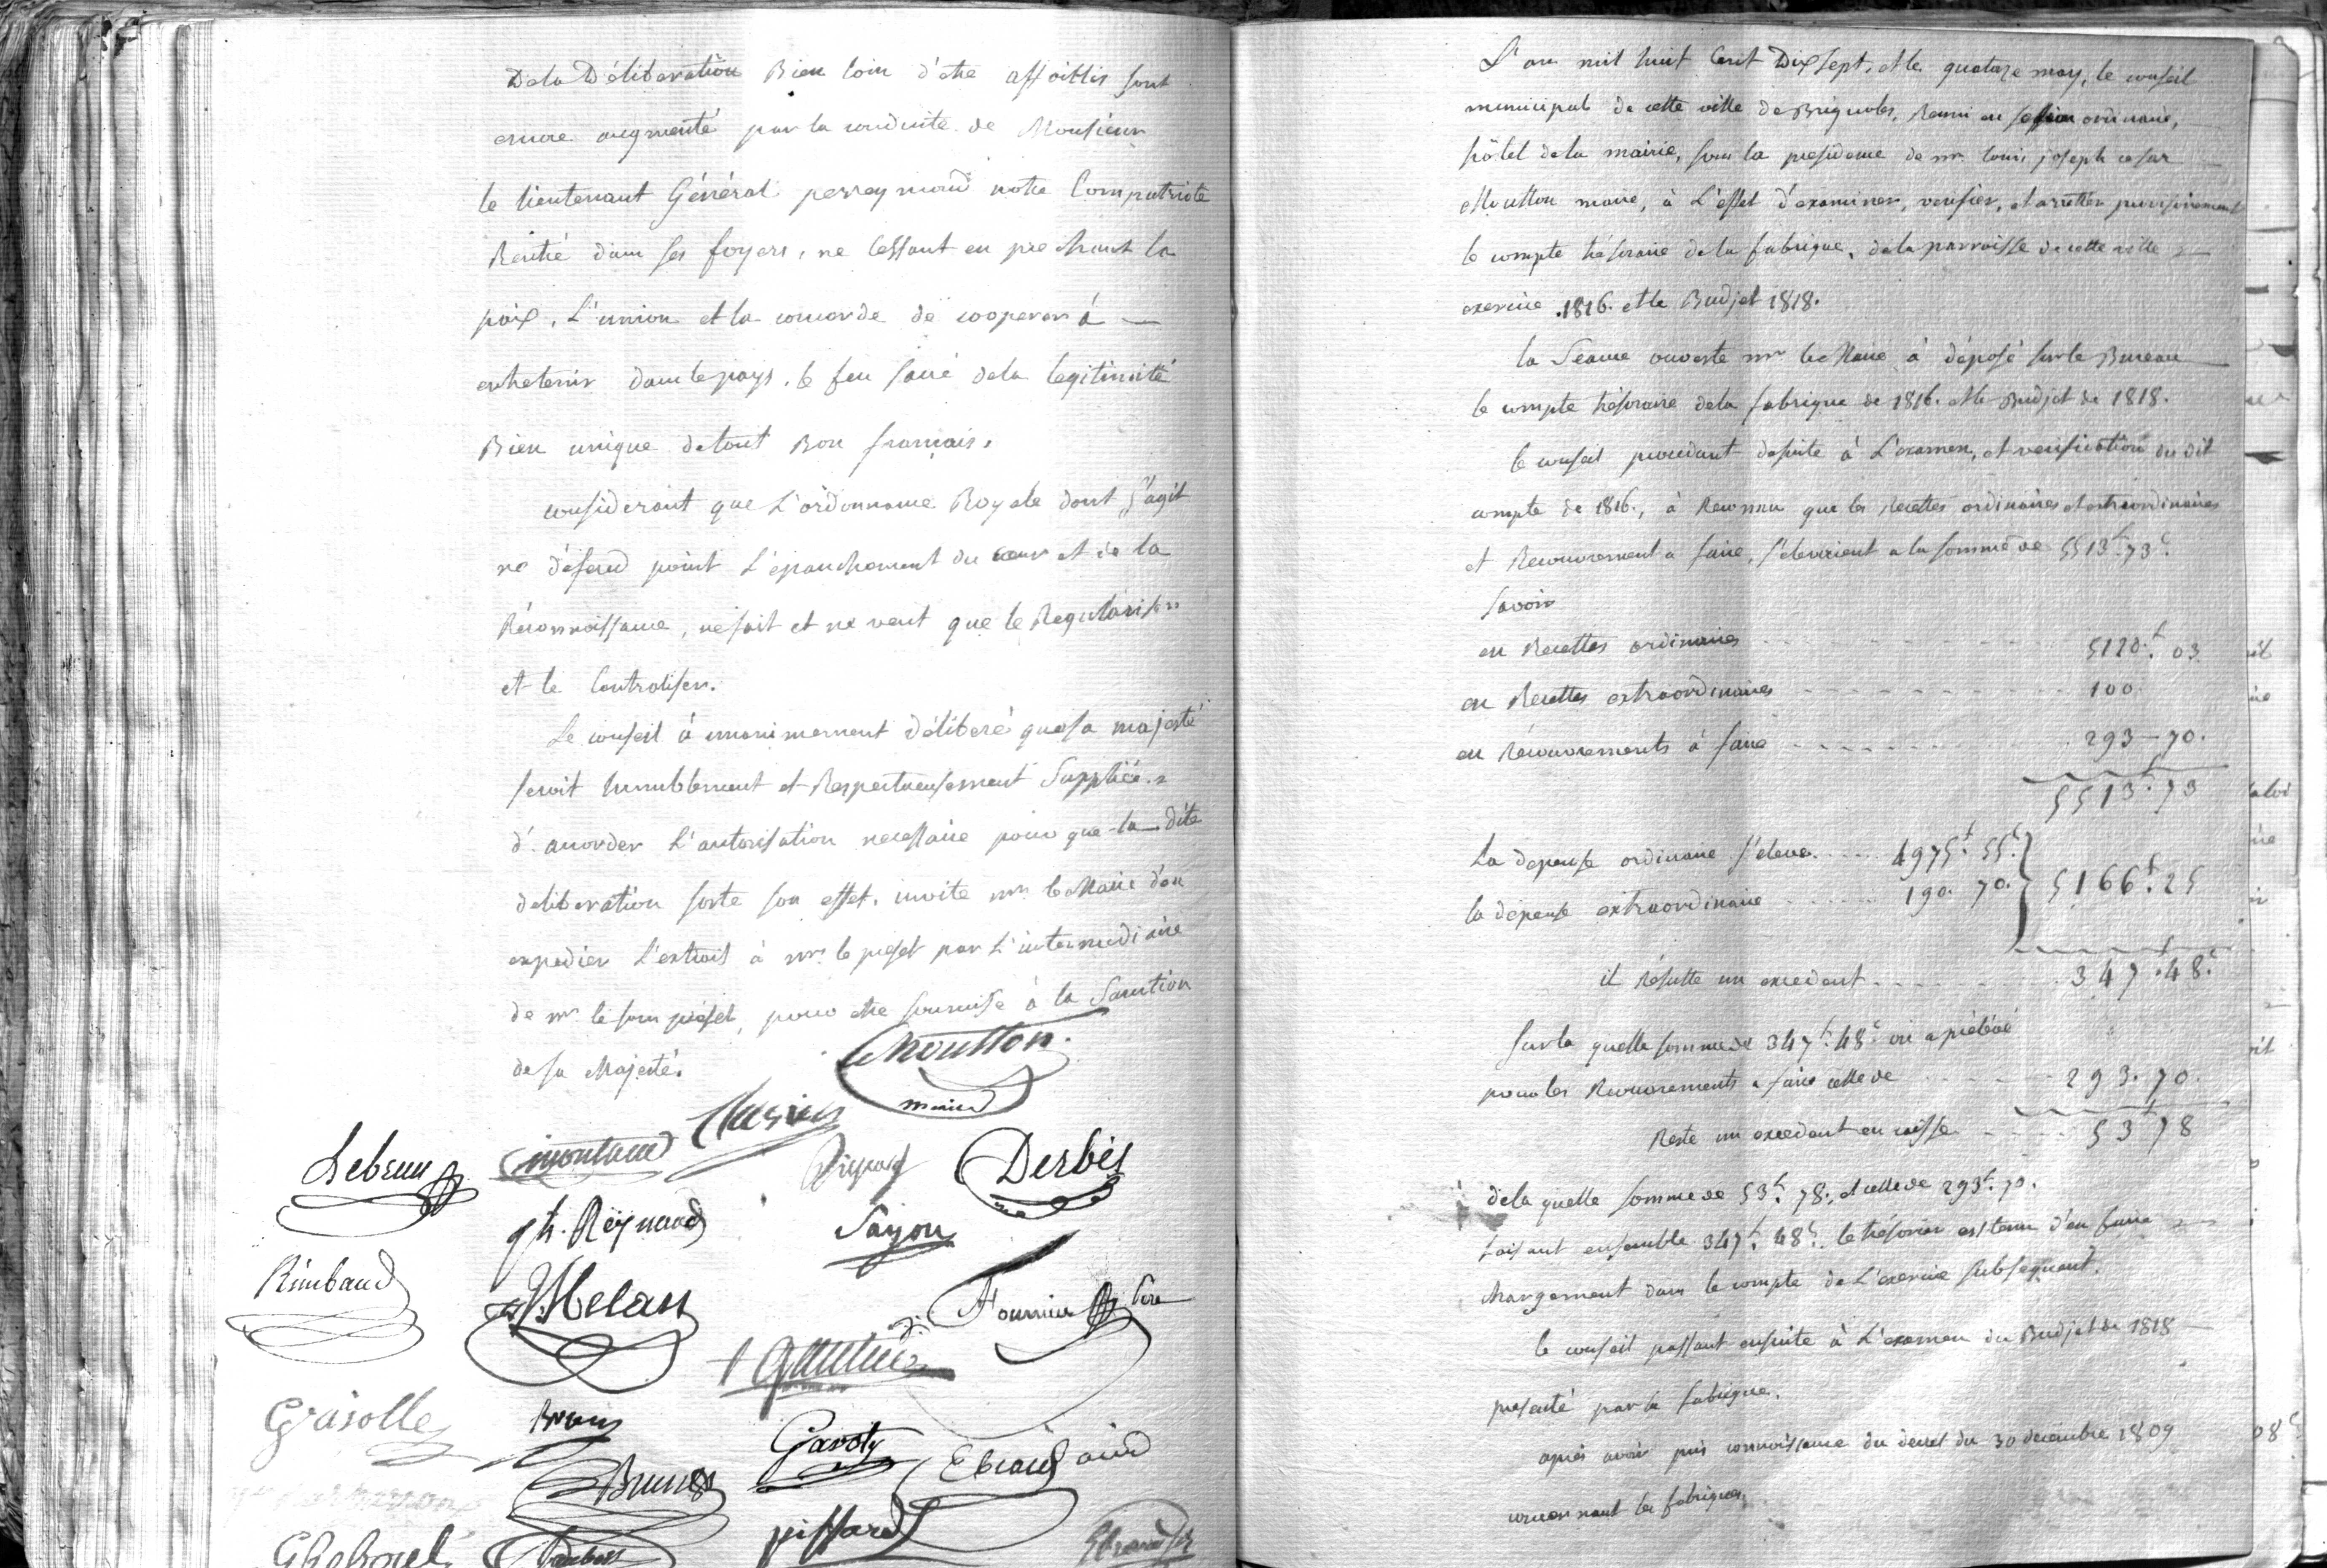 De la Déliberation Bien loin d'etre affoiblis sont
encore augmenté par la conduite de Monsieur
le lieutenant Général perreymond notre Compatriote
Rentré dans ses foyers, ne cessant en prechant la
paix, L'union et la concorde de cooperer à
entretenir dans le pays, le feu sacré de la legitimité
Bien unique de tout Bon français.
considerant que L'ordonnance Royale dont s'agit
ne défend point L'épanchement du cœur et de la
Réconnoissance, ne fait et ne veut que le Regulariser
et le Centraliser.
Le conseil à unanimement déliberé que sa majesté
seroit humblement et Respectueusement Suppliée
d'accorder L'autorisation necessaire pour que la dite
deliberation sorte son effet, invite mr. le Maire d'en
expedier L'extrait à mr. le prefet par L'intermediaire
de mr. le sous prefet, pour etre soumise à la Sanction
de sa Majesté.
Moutton
maire
Lebrun
Montaud
Derbès
Rëynaud
Sayou
Rimbaud
Melan
Fournier
Gautier
Garolle
Brun
Gavoty
Brunet
Ebrard ainé
piffard
L'an mil huit Cent Dix sept, et le quatorze may, le conseil
municipal de cette ville de Brignoles, Reuni en session ordinaire,
hôtel de la mairie, sous la presidence de mr. louis joseph cesar
Moutton maire, à L'effet d'examiner, verifier, et arretter provisoirement
le compte trésoraire de la fabrique, de la parroisse de cette ville
exercice 1816. et le Budjet 1818.
la Séance ouverte mr. le Maire à déposé sur le Bureau
le compte trésoraire de la fabrique de 1816. et le Budjet de 1818.
le conseil procedant desuite à L'examen, et verification du dit
compte de 1816., à Reconnu que les Recettes ordinaires et extraordinaires
et Recouvrement a faire, s'elevoient a la somme de 5513f. 73c.
Savoir
en Recettes ordinaires 5120f. 03
en Recettes extraordinaires 100
en Récouvrements à faire 293 - 70.
5513f. 73
La depense ordinaire s'eleve 4975f. 55.
la dépense extraordinaire 190. 70. 5166f. 25
il Résulte un excedent 347f. 48c.
Sur la quelle somme de 347f. 48c on a prélévé
pour les Recouvrements a faire celle de 293. 70.
Reste un excedent en caisse 53f 78
de la quelle somme de 53f. 78, et celle de 293f. 70.
faisant ensemble 347f. 48c. le trésorier est tenu d'en faire
chargement dans le compte de L'exercice subsequent.
le conseil passant ensuite à L'examen du Budjet de 1818
presenté par la fabrique.
après avoir pris connoissance du decret du 30 decembre 1809
concernant les fabriques,